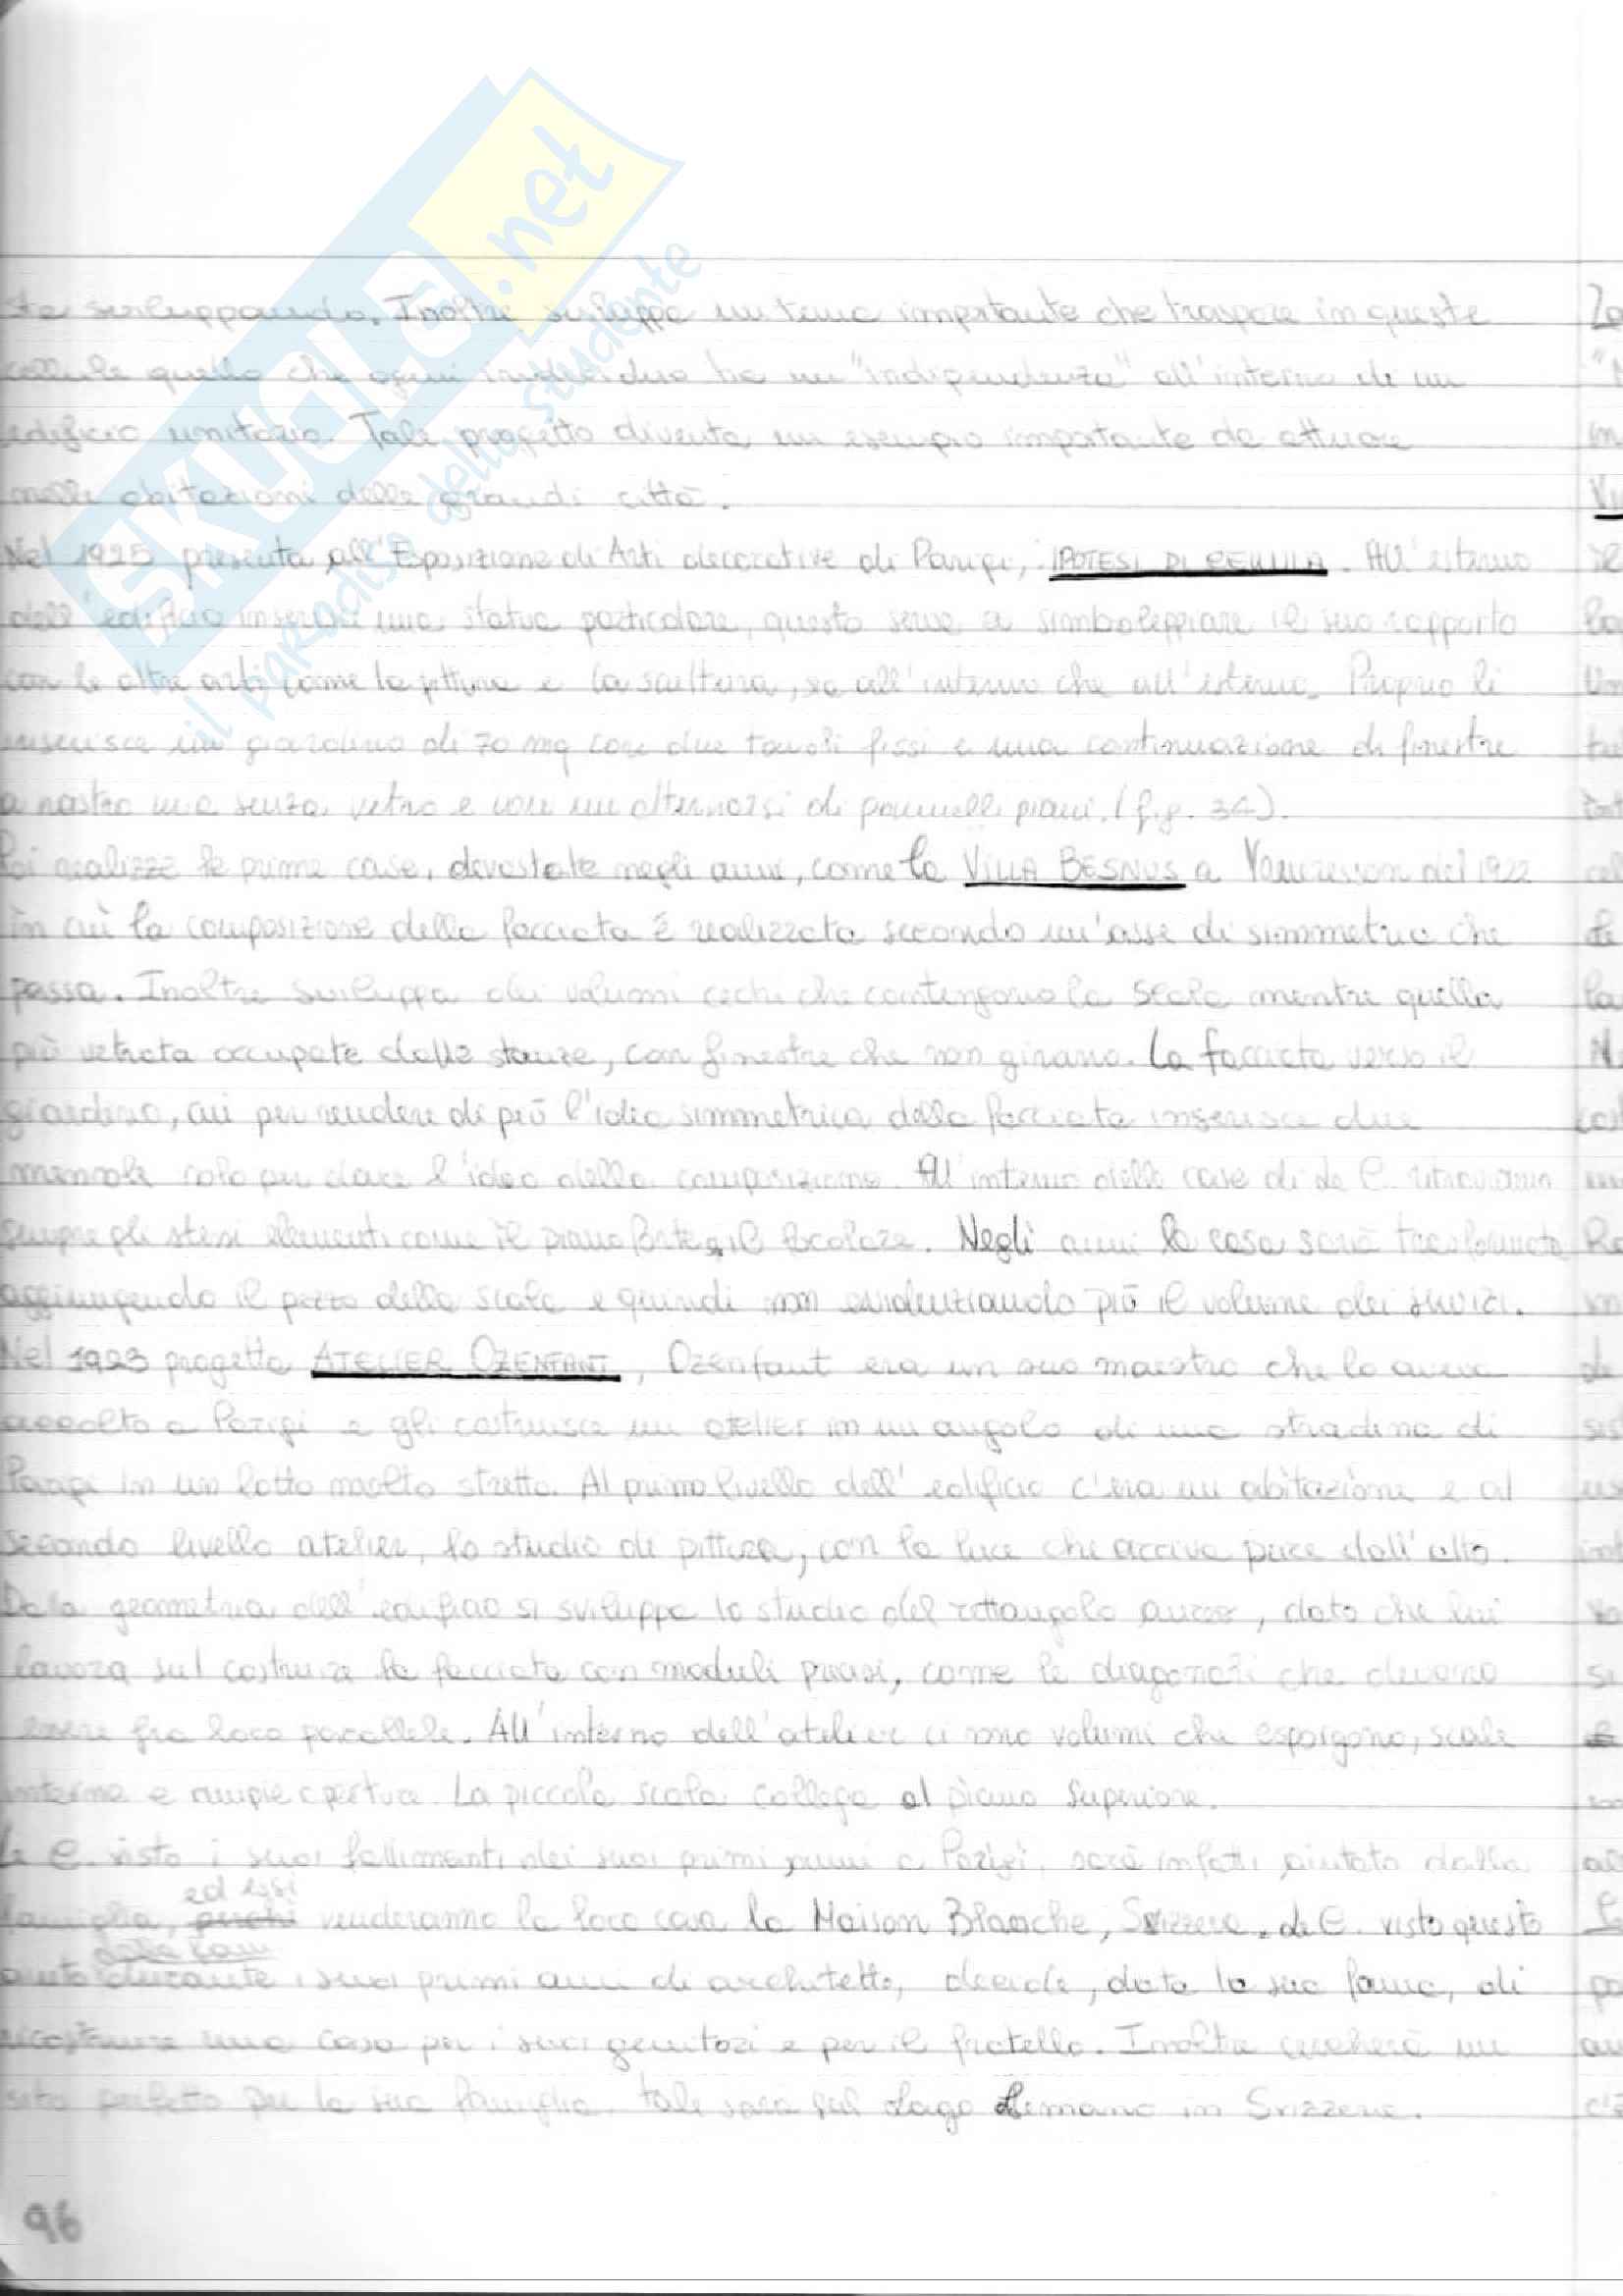 SKUOLA.net
il paradiso dello studente
sta sviluppando. Inoltre sviluppa un tema importante che traspare in queste
cellule quello che ogni individuo ha un "indipendenza" all'interno di un
edificio unitario. Tale progetto diventa un esempio importante da attuare
nelle abitazioni delle grandi città.
Nel 1925 presenta all'Esposizione di Arti decorative di Parigi, IPOTESI DI CELLULA. All'esterno
dell'edificio inserisce una statua particolare, questo serve a simboleggiare il suo rapporto
con le altre arti come la pittura e la scultura, sa all'interno che all'esterno. Proprio lì
inserisce un giardino di 70 mq con due tavoli fissi e una continuazione di finestre
a nastro ma senza vetro e con un alternarsi di pannelli piani. (fig. 34).
Poi realizza le prime case, devastate negli anni, come la VILLA BESNUS a Vaucresson del 1922
in cui la composizione della facciata è realizzata secondo un'asse di simmetria che
passa. Inoltre sviluppa dei volumi ciechi che contengono la scala mentre quella
più vetrata occupata dalle stanze, con finestre che non girano. La facciata verso il
giardino, cui per rendere di più l'idea simmetrica della facciata inserisce due
mensole solo per dare l'idea della composizione. All'interno delle case di Le C. ritroviamo
sempre gli stessi elementi come il pianoforte, il focolare. Negli anni la casa sarà trasformata
aggiungendo il pezzo della scala e quindi non evidenziando più il volume dei servizi.
Nel 1923 progetta ATELIER OZENFANT, Ozenfant era un suo maestro che lo aveva
accolto a Parigi e gli costruisce un atelier in un angolo di una stradina di
Parigi in un lotto molto stretto. Al primo livello dell'edificio c'era un abitazione e al
secondo livello atelier, lo studio di pittura, con la luce che arriva pure dall'alto.
Dalla geometria dell'edificio si sviluppa lo studio del rettangolo aureo, dato che lui
lavora sul costruire la facciata con moduli precisi, come le diagonali che devono
essere fra loro parallele. All'interno dell'atelier ci sono volumi che esporgono, scale
interne e ampie aperture. La piccola scala collega al piano superiore.
Le C. visto i suoi fallimenti dei suoi primi anni a Parigi, sarà infatti aiutato dalla
famiglia, ed essi venderanno la loro casa la Maison Blanche, Svizzera. Le C. visto questo
aiuto durante i suoi primi anni di architetto, decide, data la sua fama, di
ricostruire una casa per i suoi genitori e per il fratello. Inoltre cercherà un
sito perfetto per la sua famiglia. tale sarà sul Lago Lemano in Svizzera.
96